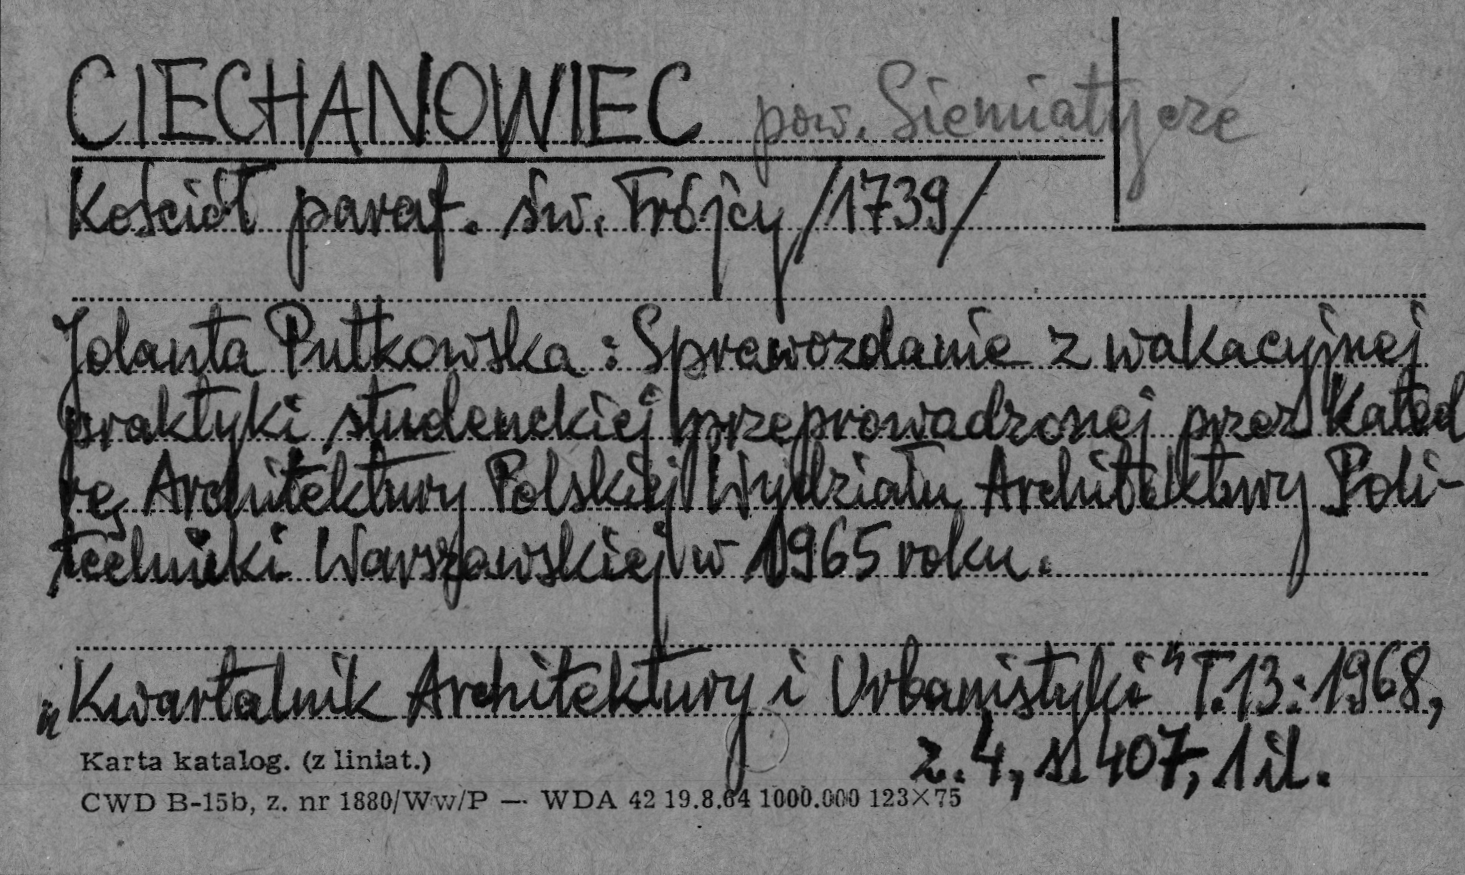 CIECHANOWIEC pow. Siemiatycze
Kościół paraf. św. Trójcy /1739/
Jolanta Putkowska : Sprawozdanie z wakacyjnej
praktyki studenckiej przeprowadzonej przez Kated
rę Architektury Polskiej Wydziału Architektury Poli-
techniki Warszawskiej w 1965 roku.
„Kwartalnik Architektury i Urbanistyki" T.13: 1968,
z. 4, s. 407, 1 il.
Karta katalog. (z liniat.)
CWD B-15b, z. nr 1880/Ww/P — WDA 42 19.8.64 1000.000 123×75